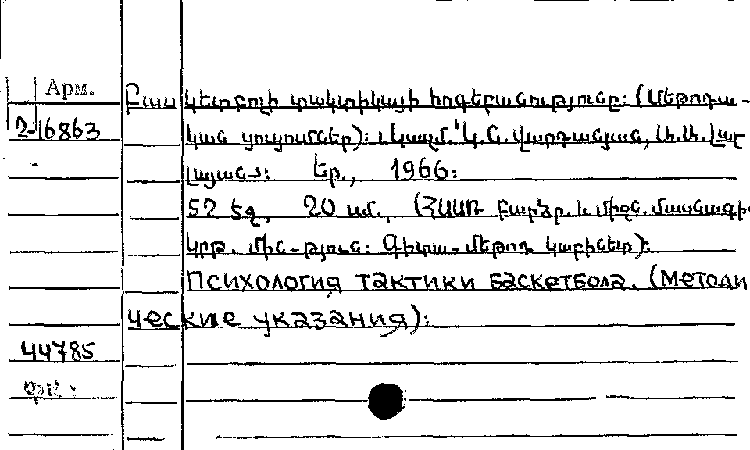 Арм.
Բասկետբոլի տակտիկայի հոգեբանությունը: (Մեթոդա-
2-16863
կան ցուցումներ): Կազմ. Կ.Ն. Վարդանյան,
լայան: Եր., 1966:
52 էջ, 20 սմ., (ՀՍՍՌ Բարձր. և միջն. մասնագի
կրթ. մին-թյուն: Գիտա-մեթոդ կաբինետ):
Психология тактики баскетбола. (Методи
ческие указания):
44785